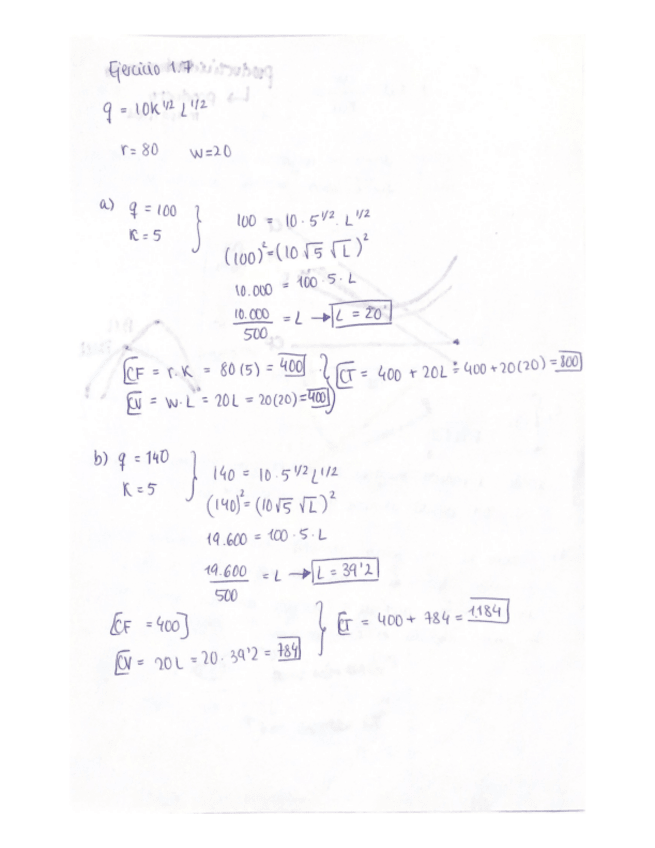 Ejercicio 1.7
q = 10K^1/2 L^1/2
r = 80 w=20
a) q = 100
K = 5
100 = 10 · 5^1/2 · L^1/2
(100)^2 = (10 √5 √L)^2
10.000 = 100 · 5 · L
10.000/500 = L → L = 20
CF = r.K = 80(5) = 400
CV = w·L = 20L = 20(20) = 400
CT = 400 + 20L = 400 + 20(20) = 800
b) q = 140
K = 5
140 = 10 · 5^1/2 L^1/2
(140)^2 = (10 √5 √L)^2
19.600 = 100 · 5 · L
19.600/500 = L → L = 39'2
CF = 400
CV = 20L = 20 · 39'2 = 784
CT = 400 + 784 = 1.184